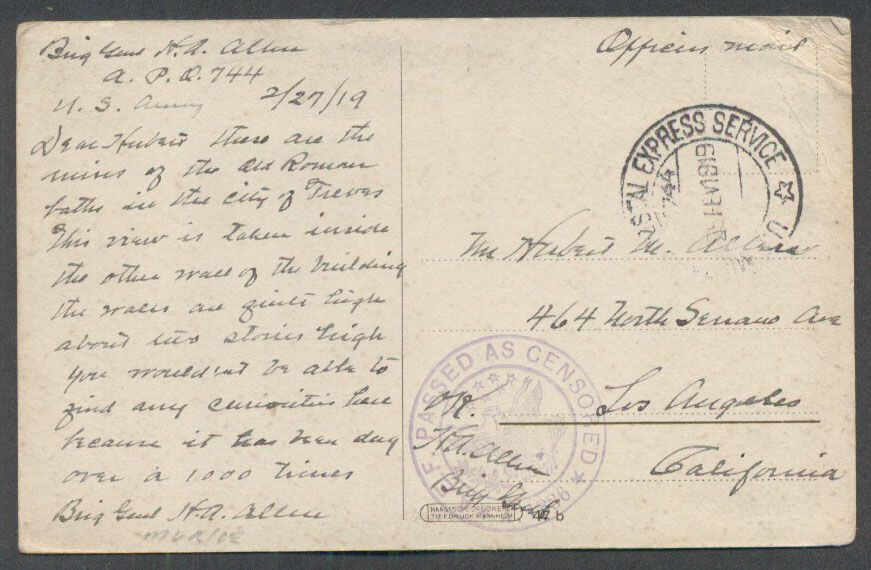 Brig Genl H. A. Allen
A. P. O. 744
U. S. Army 2/27/19
Dear Hubert these are the
ruins of the Old Roman
baths in the city of Treves
This view is taken inside
the other wall of the building
the walls are quite high
about two stories high
you wouldn't be able to
find any curiosities here
because it has been dug
over a 1000 times
Brig Genl H. A. Allen
Officers mail
STAL EXPRESS SERVICE
744
1919
Mr Hubert M. Allen
464 North Serrano Ave
Los Angeles
California
PASSED AS CENSORED
OK.
H.A. Allen
Brig Genl
TIEFDRUCK MANNHEIM
47 b